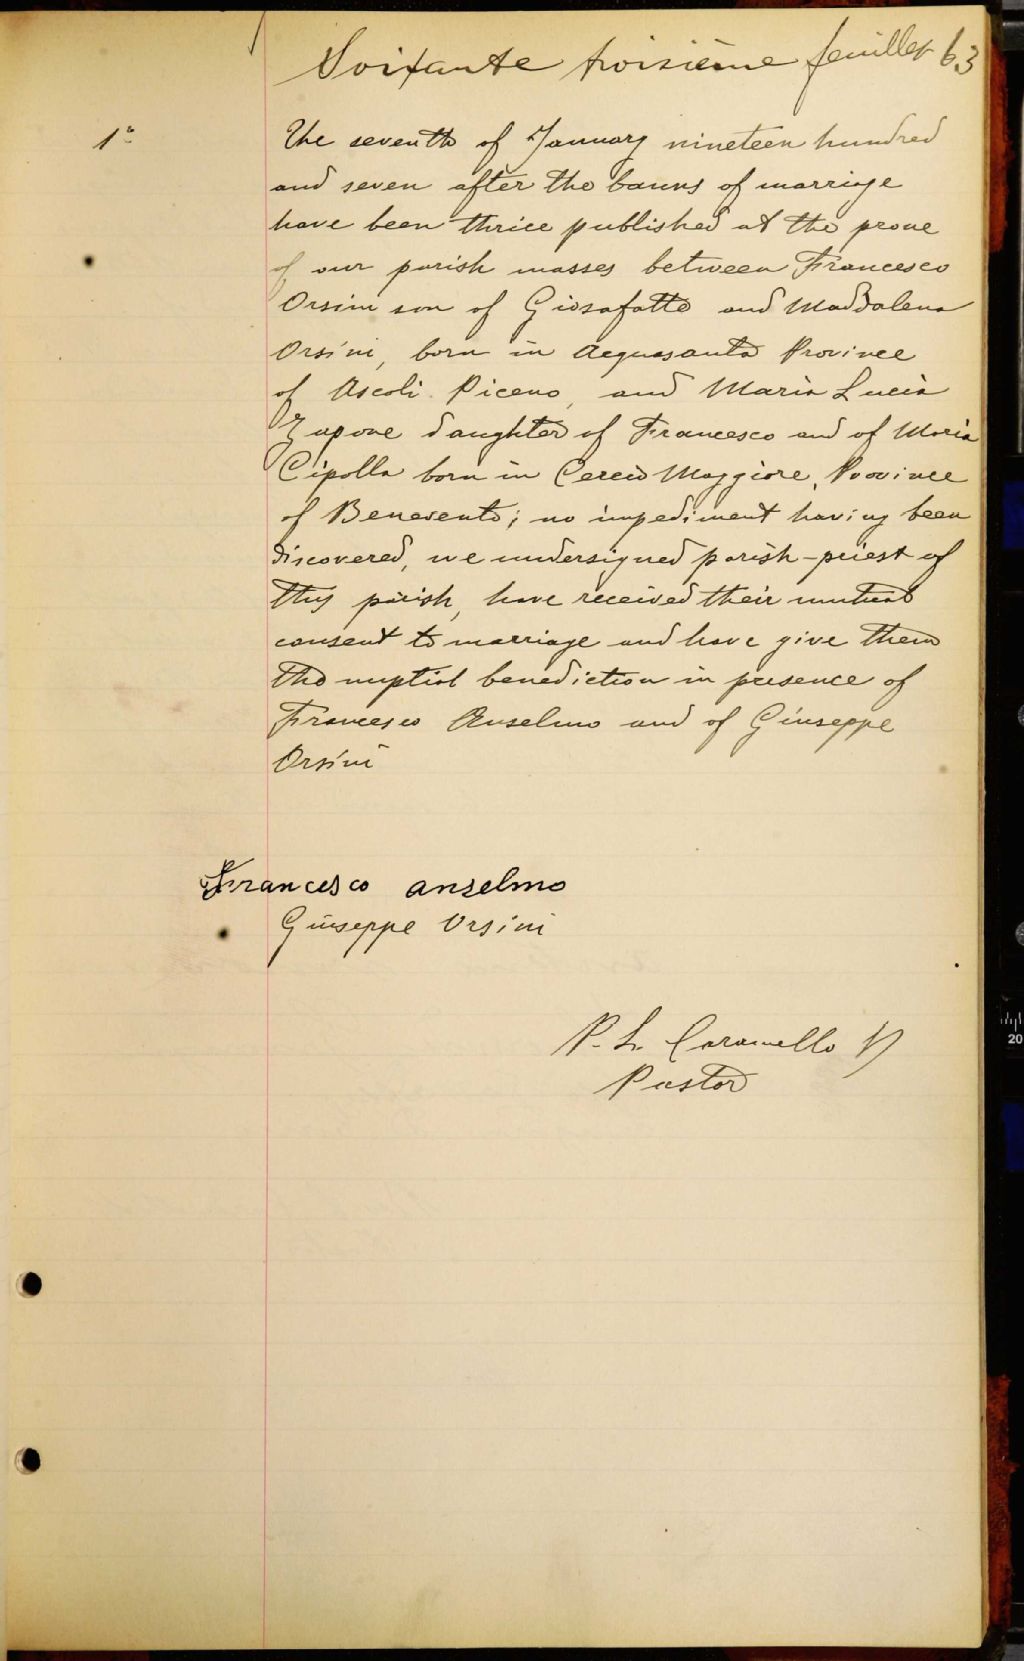 Soixante troisième feuillet 63
1°
The seventh of January nineteen hundred
and seven after the banns of marriage
have been thrice published at the prone
of our parish masses between Francesco
Orsini son of Giosafatto and Maddalena
Orsini, born in Acquasanta Province
of Ascoli Piceno, and Maria Lucia
Zapone daughter of Francesco and of Maria
Cipolla born in Cercio Maggiore, Province
of Benevento; no impediment having been
discovered, we undersigned parish-priest of
this parish, have received their mutual
consent to marriage and have give them
the nuptial benediction in presence of
Francesco Anselmo and of Giuseppe
Orsini
Francesco anselmo
Giuseppe Orsini
P. L. Caramello
Pastor
20